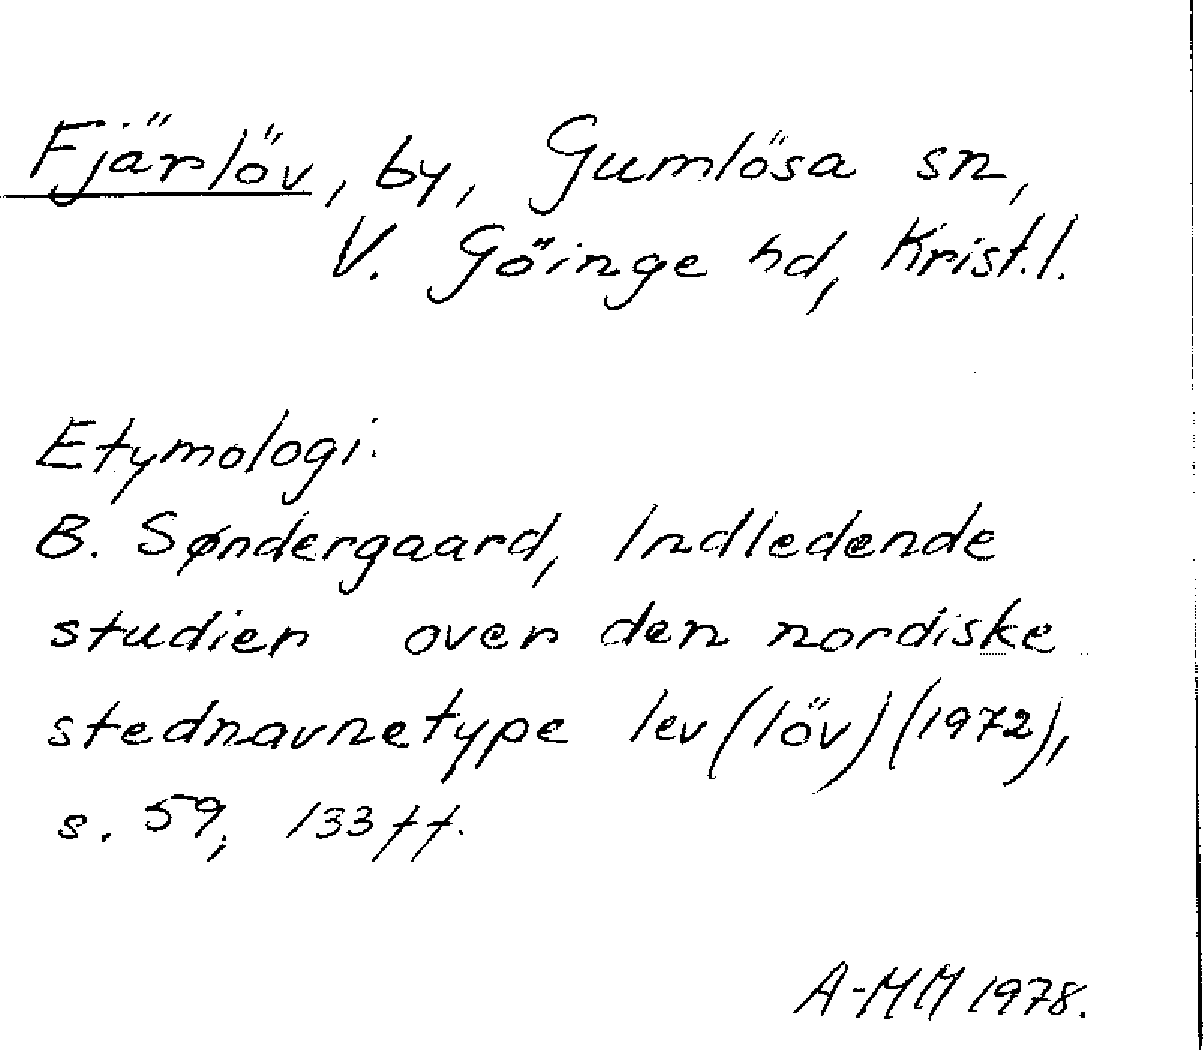 Fjärlöv, by, Gumlösa sn,
V. Göinge hd, Krist.l.
Etymologi.
B. Søndergaard, Indledende
studier over den nordiske
stednavnetype lev (löv) (1972),
s. 59, 133 ff.
A-MM 1978.